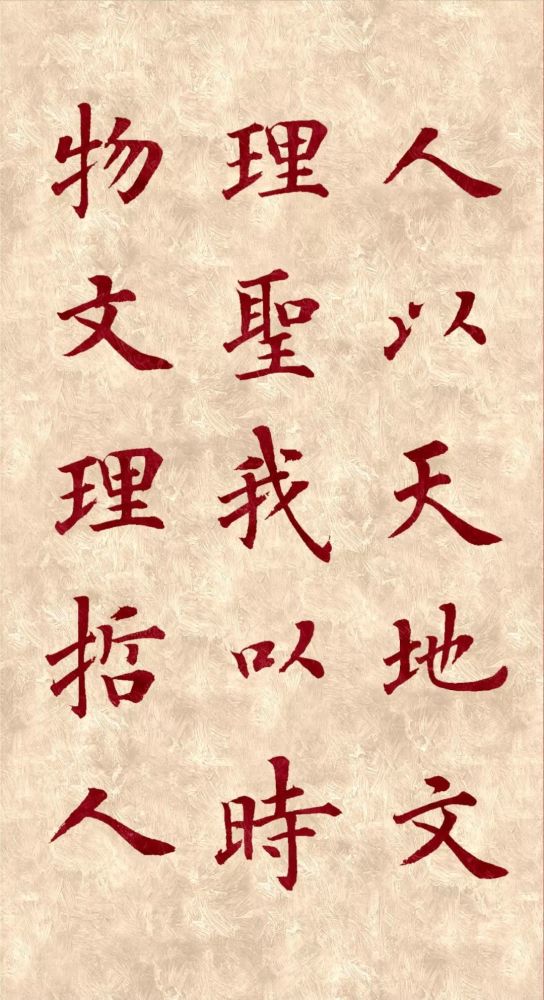 人以天地文
理聖我以時
物文理哲人